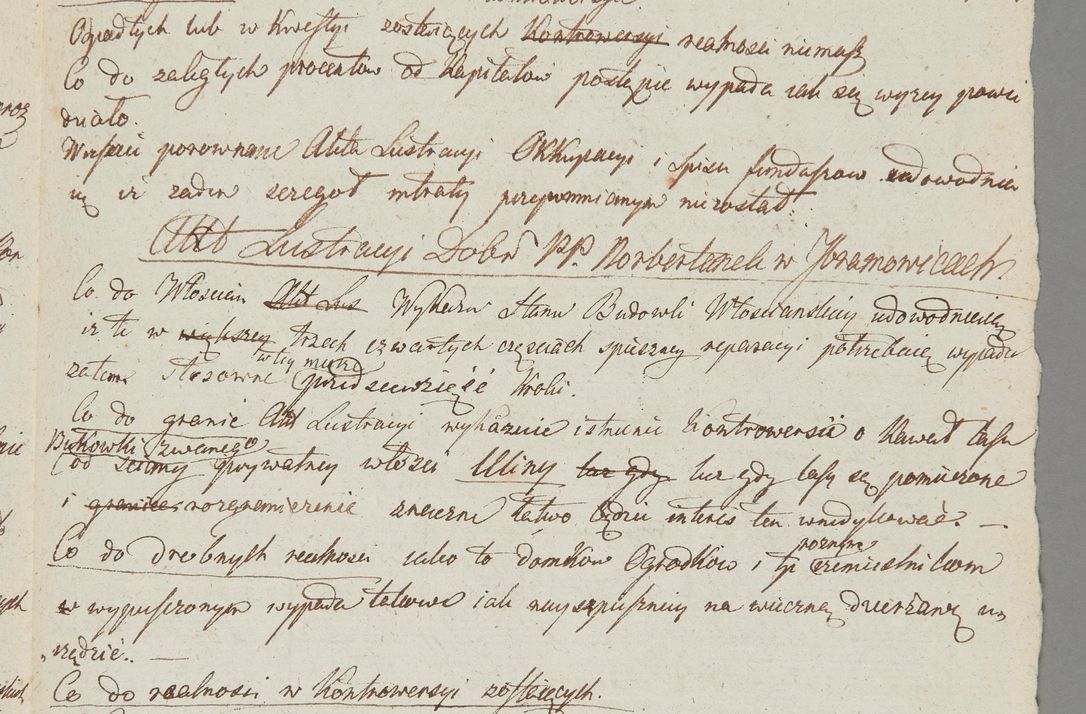 Odpadłych lub w Kwestyi zostaiących Kontrowersyi realnosci niemasz
Co do zaległych procentow od Kapitałow postąpic wypada iak się wyzey powie
działo.
porownanie Akta Lustracyi Okkupacyi i Spisu funduszow udowodnia
ią iz zaden szczegoł intraty przepomnianym niezostał.
Akt Lustracyi Dobr PP. Norbertanek w Ibramowicach.
Co do Włoscian Akt Lus Wykazu Stanu Budowli Włoscianskiey udowodniaią
iz te w większey trzech czwartych częsciach spieszney reparacyi potrzebuią wypada
zatem stosowne w tey mierze przedsiewziąść kroki.
Co do granic Akt Lustracyi wykazuie istnienie Kontrowersii o Kawał lasu
Bukowki zwanego
od sciany prywatney włosci Uliny lecz gdy lecz gdy lasy są pomierzone
i granice rozgraniczenie znaczne łatwo będzie interes ten windykować. —
Co do drobnych realnosci iako to domkow Ogrodkow i tp roznym rzemieslnikom
w wypuszczonym wypada takowe iak nayspieszniey na wieczną dzierżawę u=
rządzić. —
Co do realnosci w Kontrowersyi zostaiących.